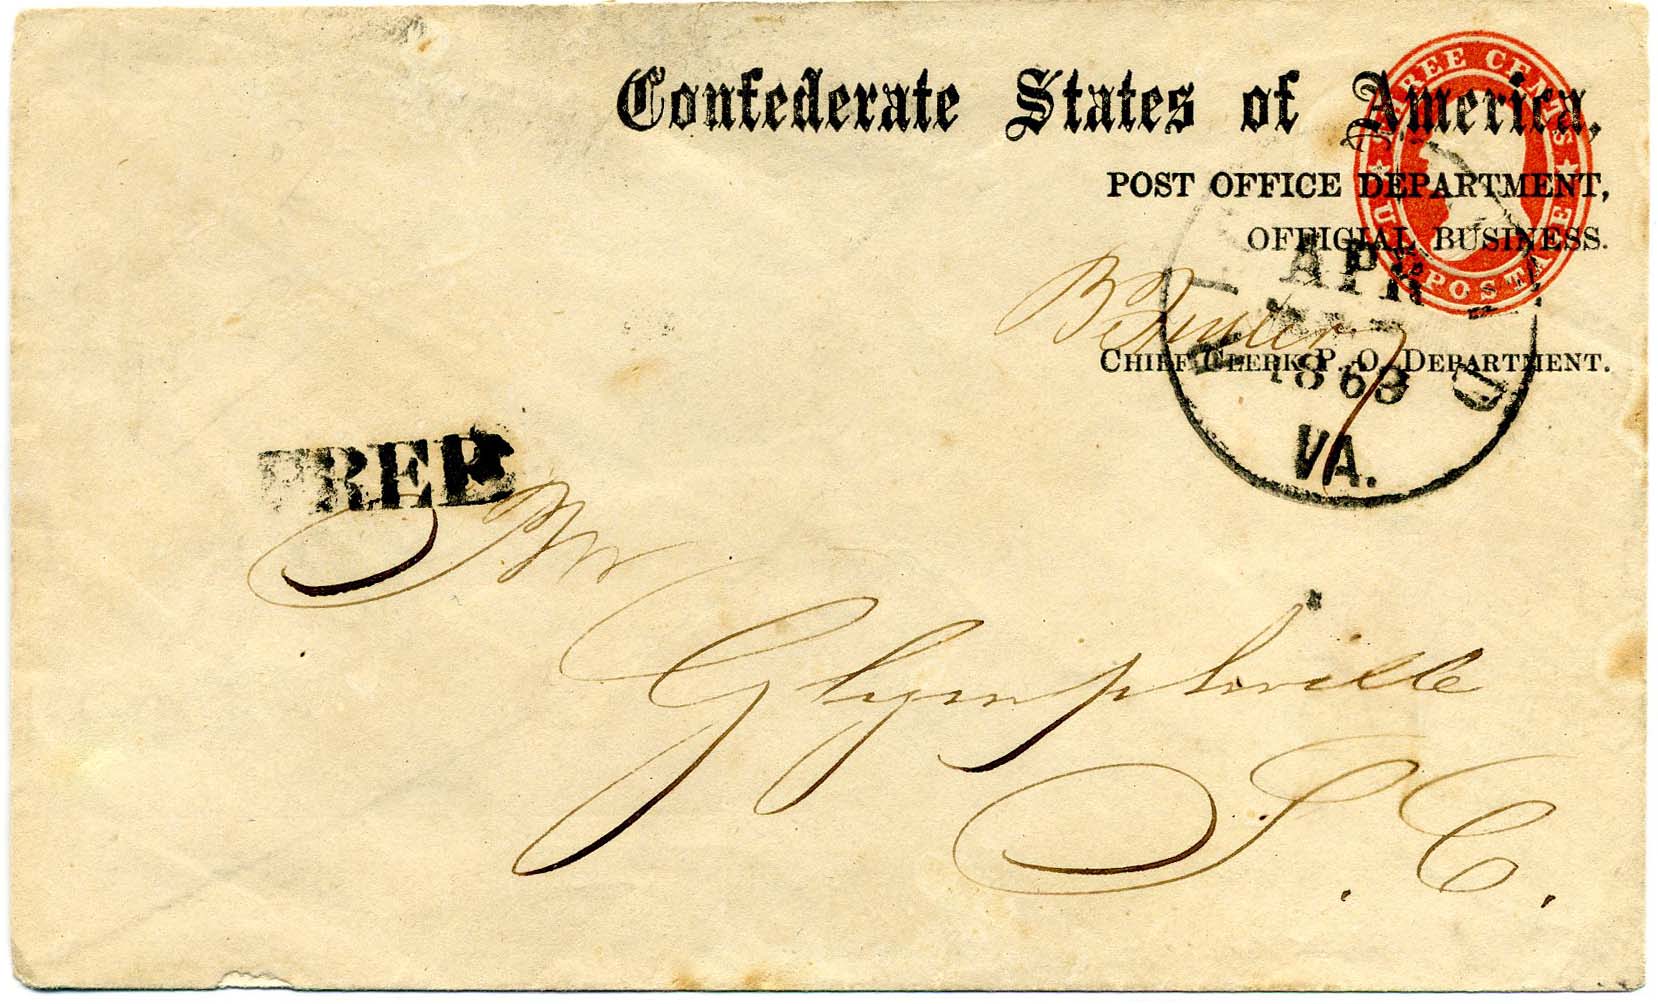 Confederate States of America,
POST OFFICE DEPARTMENT,
OFFICIAL BUSINESS.
B. Fuller
CHIEF CLERK P. O. DEPARTMENT.
THREE CENTS
U.S. POSTAGE
RICHMOND
APR
1863
VA.
FREE
Mr
Glymphville
S. C.